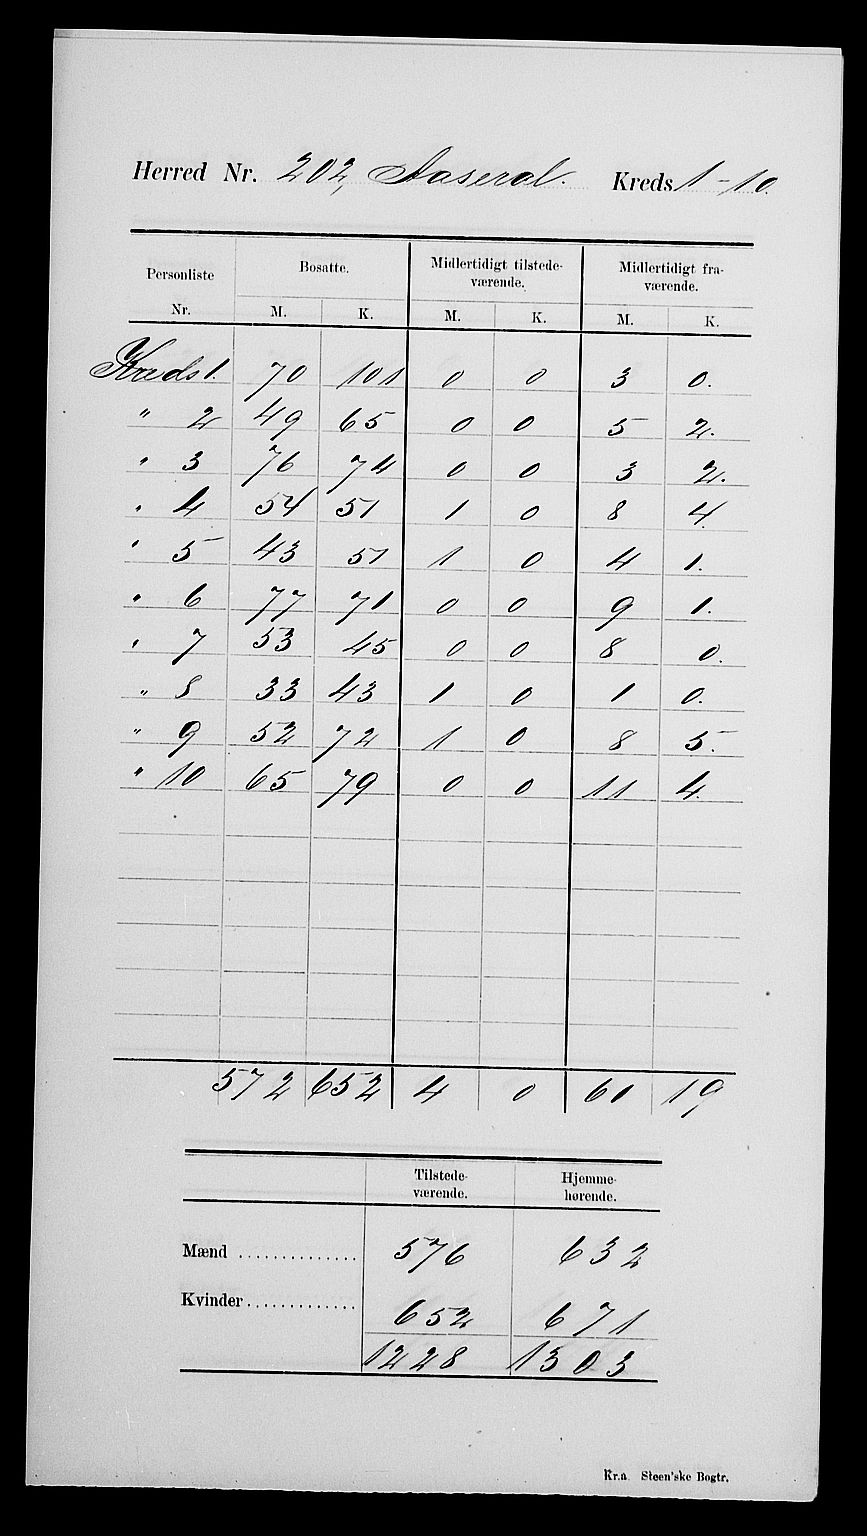 Herred Nr. 202, Aaseral. Kreds 1-10.
Personliste Nr. | Bosatte. | Midlertidigt tilstede-værende. | Midlertidigt fra-værende.
M. K. M. K. M. K.
Kreds 1. 70 101 0 0 3 0.
" 2 49 65 0 0 5 2.
" 3 76 74 0 0 3 2.
" 4 54 51 1 0 8 4.
" 5 43 51 1 0 4 1.
" 6 77 71 0 0 9 1.
" 7 53 45 0 0 8 0.
" 8 33 43 1 0 1 0.
" 9 52 72 1 0 8 5.
" 10 65 79 0 0 11 4.
572 652 4 0 61 19,
Tilstede-værende. | Hjemme-hørende.
Mænd .............. 576 632
Kvinder ............. 652 671
1228 1303
Kr.a Steen'ske Bogtr.